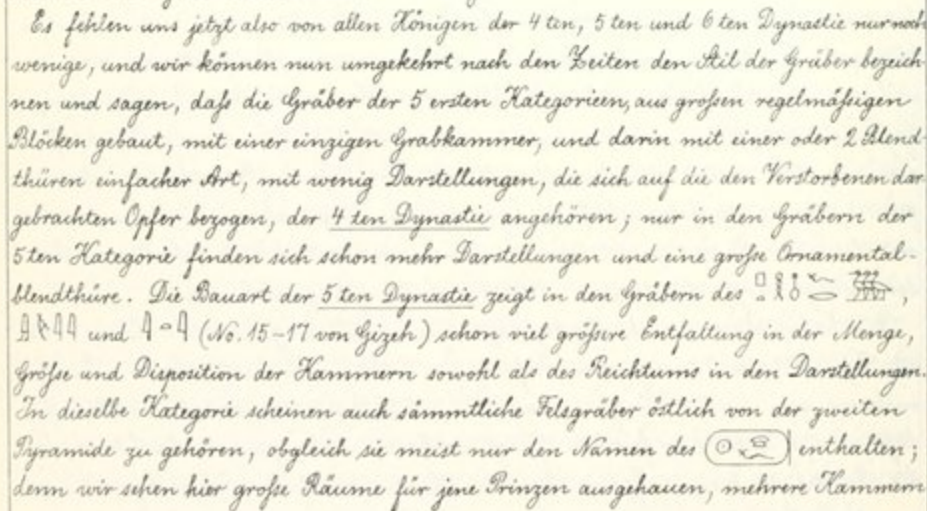 Es fehlen uns jetzt also von allen Königen der 4ten, 5ten und 6ten Dynastie nur noch
wenige, und wir können nun umgekehrt nach den Zeiten den Stil der Gräber bezeich-
nen und sagen, daſs die Gräber der 5 ersten Kategorieen, aus groſsen regelmäſsigen
Blöcken gebaut, mit einer einzigen Grabkammer, und darin mit einer oder 2 Blend-
thüren einfacher Art, mit wenig Darstellungen, die sich auf die den Verstorbenen dar
gebrachten Opfer bezogen, der 4ten Dynastie angehören; nur in den Gräbern der
5ten Kategorie finden sich schon mehr Darstellungen und eine groſse Ornamental-
blendthüre. Die Bauart der 5ten Dynastie zeigt in den Gräbern des ,
und (No. 15–17 von Gizeh) schon viel gröſsere Entfaltung in der Menge,
Gröſse und Disposition der Kammern sowohl als des Reichtums in den Darstellungen.
In dieselbe Kategorie scheinen auch sämmtliche Felsgräber östlich von der zweiten
Pyramide zu gehören, obgleich sie meist nur den Namen des enthalten;
denn wir sehen hier groſse Räume für jene Prinzen ausgehauen, mehrere Kammern